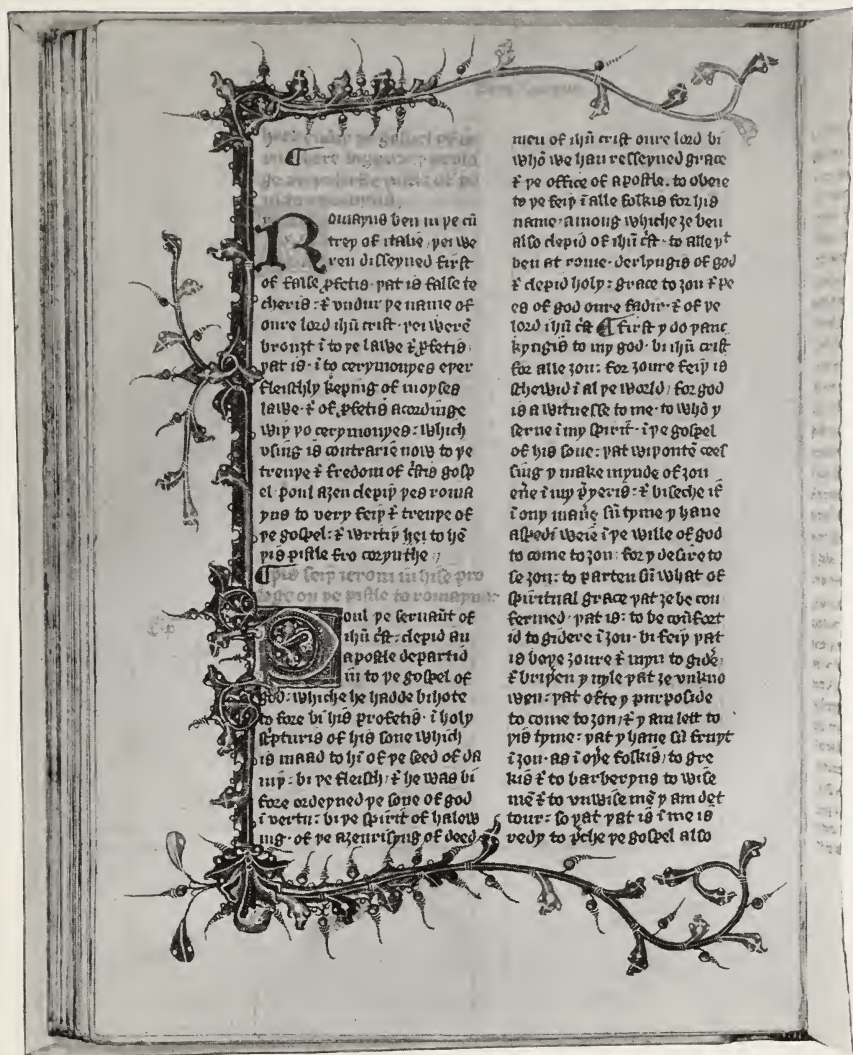 Romayns ben in þe cū
trey of italie · þei we
ren disseyued first
of false ꝓfetis · þat is false te
cheris : ⁊ vndur þe name of
oure lord ihū crist · þei were
brouȝt ī to þe lawe ⁊ ꝓfetis ·
þat is · ī to cerymonyes eþer
fleischly keping of moyses
lawe · ⁊ of ꝓfetis acordinge
wiþ þo cerymonyes : which
vsing is contrarie now to þe
treuþe ⁊ fredom of c̄stis gosp
el · poul aȝen clepiþ þes roma
yns to very feiþ ⁊ treuþe of
þe gospel : ⁊ writiþ hē
þis pistle fro corynthe ·
¶ þis seiþ ierom in hise pro
loge on þe pistle to romayns
Poul þe seruaūt of
ihū c̄st : clepid an
apostle departid
in to þe gospel of
god : whiche he hadde bihote
to fore bi his profetis · ī holy
sc̄pturis of his sone which
is maad to hī of þe seed of da
uiþ : bi þe fleisch / ⁊ he was bi
fore ordeyned þe sone of god
ī vertu : bi þe spirit of halow
ing · of þe aȝenrisyng of deed
men of ihū crist oure lord bi
whō we hau resseyued grace
⁊ þe office of apostle · to obeie
to þe feiþ ī alle folkis for his
name · among whiche ȝe ben
also clepid of ihū c̄st · to alle þᵗ
ben at rome · derlyngis of god
⁊ clepid holy : grace to ȝou ⁊ pe
es of god oure fadir · ⁊ of þe
lord ihū c̄st ¶ first y do þanc
kyngis to my god · bi ihū crist
for alle ȝou : for ȝoure feiþ is
schewid ī al þe world / for god
is a witnesse to me · to whō y
serue ī my spirit · ī þe gospel
of his sone : þat wiþoutē cees
sing y make mynde of ȝou
eūe ī my p̄yeris : ⁊ biseche if
ī ony man̄e sū tyme y haue
a spedi weie ī þe wille of god
to come to ȝou : for y desire to
se ȝou : to parten sū what of
spiritual grace þat ȝe be con
fermed · þat is : to be coūfort
id to gidere ī ȝou · bi feiþ þat
is boþe ȝoure ⁊ myn to gidē ·
⁊ briþen y nyle þat ȝe vnkno
wen : þat ofte y purposide
to come to ȝou / ⁊ y am lett to
þis tyme : þat y haue sū fruyt
ī ȝou · as ī oþe folkis / to gre
kis ⁊ to barberyns to wise
mē ⁊ to vnwise mē y am det
tour : so þat þat is ī me is
redy to p̄che þe gospel also